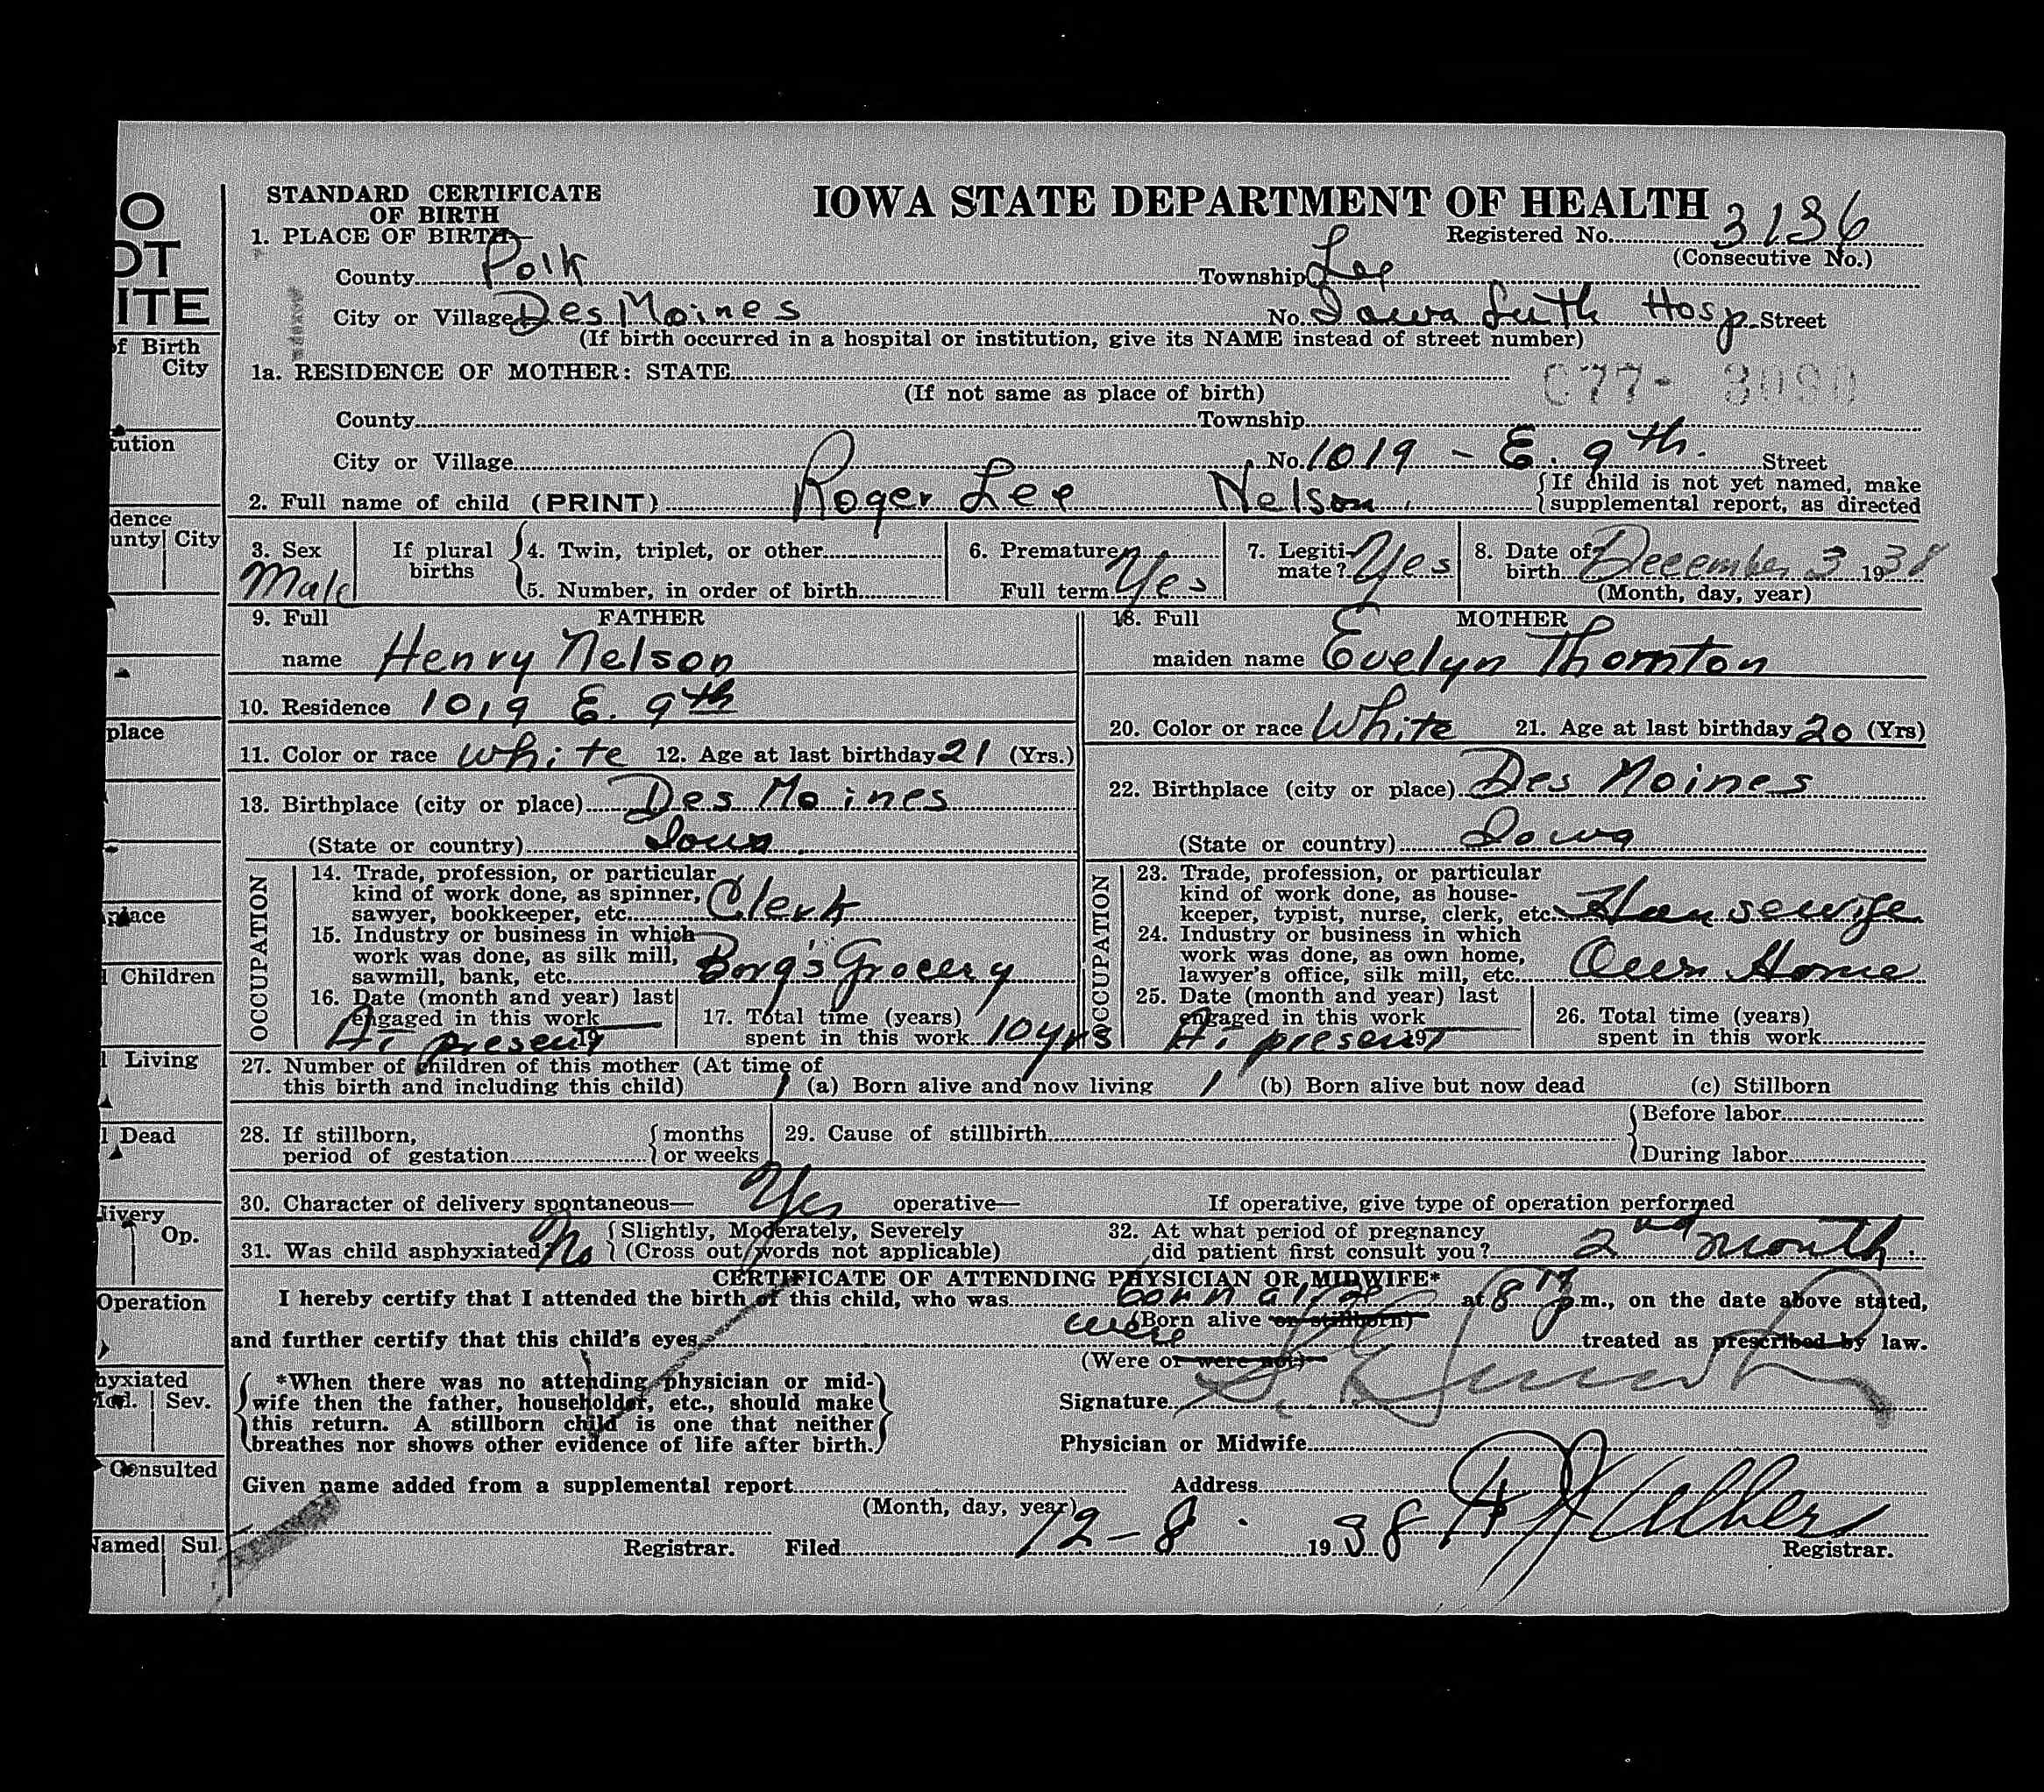 STANDARD CERTIFICATE OF BIRTH
IOWA STATE DEPARTMENT OF HEALTH
Registered No. 3136
(Consecutive No.)
1. PLACE OF BIRTH—
County Polk Township Lee
City or Village Des Moines No. Iowa Luth Hosp. Street
(If birth occurred in a hospital or institution, give its NAME instead of street number)
1a. RESIDENCE OF MOTHER: STATE
(If not same as place of birth)
County Township
City or Village No. 1019 - E. 9th. Street
2. Full name of child (PRINT) Roger Lee Nelson
{If child is not yet named, make supplemental report, as directed
3. Sex Male
If plural births {4. Twin, triplet, or other
5. Number, in order of birth
6. Premature
Full term Yes
7. Legitimate? Yes
8. Date of birth December 3 1938
(Month, day, year)
FATHER
9. Full name Henry Nelson
10. Residence 1019 E. 9th
11. Color or race White 12. Age at last birthday 21 (Yrs.)
13. Birthplace (city or place) Des Moines
(State or country) Iowa
OCCUPATION
14. Trade, profession, or particular
kind of work done, as spinner,
sawyer, bookkeeper, etc. Clerk
15. Industry or business in which
work was done, as silk mill,
sawmill, bank, etc. Borg's Grocery
16. Date (month and year) last
engaged in this work At present 19
17. Total time (years)
spent in this work 10 yrs
MOTHER
18. Full maiden name Evelyn Thornton
20. Color or race White 21. Age at last birthday 20 (Yrs)
22. Birthplace (city or place) Des Moines
(State or country) Iowa
OCCUPATION
23. Trade, profession, or particular
kind of work done, as house-
keeper, typist, nurse, clerk, etc. Housewife
24. Industry or business in which
work was done, as own home,
lawyer's office, silk mill, etc. Own Home
25. Date (month and year) last
engaged in this work At present 19
26. Total time (years)
spent in this work
27. Number of children of this mother (At time of
this birth and including this child) 1 (a) Born alive and now living 1 (b) Born alive but now dead (c) Stillborn
28. If stillborn,
period of gestation {months
or weeks
29. Cause of stillbirth
{Before labor
During labor
30. Character of delivery spontaneous— Yes operative— If operative, give type of operation performed
31. Was child asphyxiated? No {Slightly, Moderately, Severely
(Cross out words not applicable)
32. At what period of pregnancy
did patient first consult you? 2nd month.
CERTIFICATE OF ATTENDING PHYSICIAN OR MIDWIFE*
I hereby certify that I attended the birth of this child, who was born alive at 8 p.m., on the date above stated,
(Born alive or stillborn)
and further certify that this child's eyes were treated as prescribed by law.
(Were or were not)
{*When there was no attending physician or mid-
wife then the father, householder, etc., should make
this return. A stillborn child is one that neither
breathes nor shows other evidence of life after birth.}
Signature
Physician or Midwife
Given name added from a supplemental report
(Month, day, year)
Address
Registrar. Filed 12-8 1938
Registrar.
O
OT
ITE
of Birth
City
tution
dence
unty City
place
place
Children
Living
Dead
livery
Op.
Operation
hyxiated
Mod. Sev.
Consulted
Named Sul.